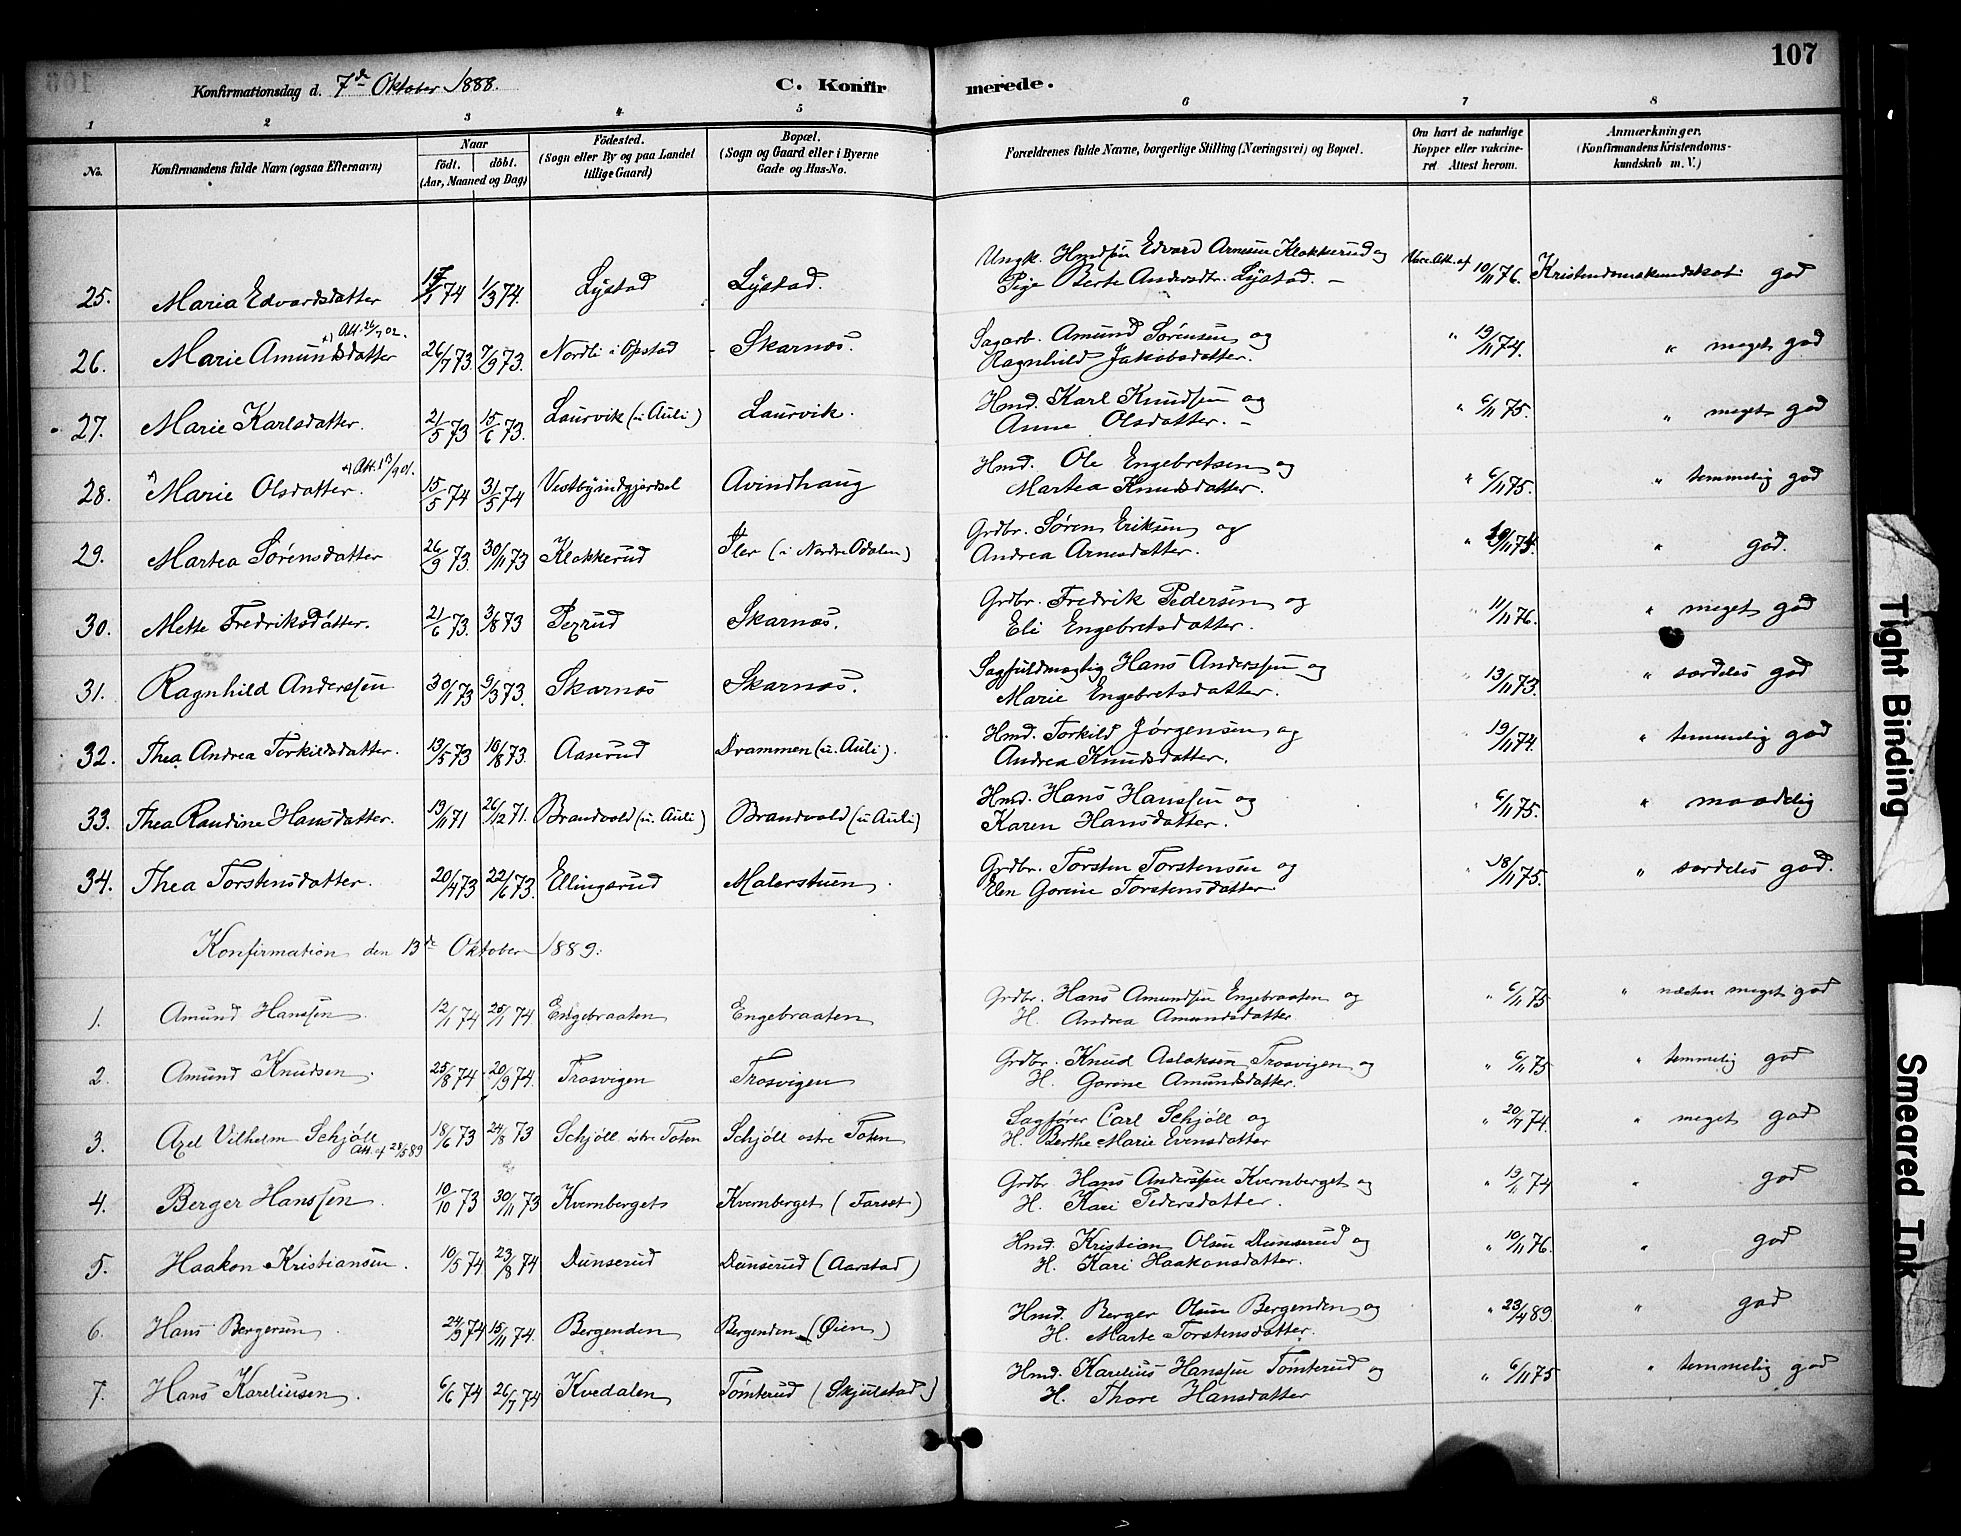 107
Konfirmationsdag d. 7de Oktober 1888.
C. Konfirmerede.
1 2 3 4 5 6 7 8
No.
Konfirmandens fulde Navn (ogsaa Efternavn)
Naar
födt. döbt.
(Aar, Maaned og Dag)
Födested.
(Sogn eller By og paa Landet
tillige Gaard)
Bopæl.
(Sogn og Gaard eller i Byerne
Gade og Hus-No.
Forældrenes fulde Navne, borgerlige Stilling (Næringsvei) og Bopæl.
Om havt de naturlige
Kopper eller vakcine-
ret. Attest herom.
Anmærkninger.
(Konfirmandens Kristendoms-
kundskab m. V.)
25. Maria Edvardsdatter 17/1 74 1/3 74. Lystad Lystad. Ungk. Hmdsön Edvard Arnesen Klokkerud og Vacc. Att. af 10/11 76. Kristendomskundskab: god
Pige Berte Andersdtr. Lystad. –
x) Att. 26/7 02.
26. Marie Amundsdatter 26/7 73 7/9 73. Nordli i Opstad Skarnæs. Sagarb. Amund Sørensen og " 19/11 74. " meget god
Ragnhild Jakobsdatter.
27. Marie Karlsdatter. 21/5 73 15/6 73. Laurvik (u. Auli) Laurvik. Hmd. Karl Knudsen og " 6/11 75. " meget god
Anne Olsdatter. –
x) Att. 13/9 01.
28. x) Marie Olsdatter. 15/5 74 31/5 74 Vestbyindgjærdsel Avindhaug Hmd. Ole Engebretsen og " 6/11 75. " temmelig god
Martea Knudsdatter.
29. Martea Sørensdatter 26/9 73. 30/11 73 Klokkerud Iler (i Nordre Odalen) Grdbr. Søren Eriksen og " /11 74. " god.
Andrea Arnesdatter.
30. Mette Fredriksdatter. 21/6 73. 3/8 73 Pexrud Skarnæs. Grdbr. Fredrik Pedersen og " 11/11 76. " meget god
Eli Engebretsdatter.
31. Ragnhild Anderssen 30/1 73 9/3 73. Skarnæs Skarnæs. Sagfuldmægtig Hans Anderssen og 13/11 73. " særdeles god
Marie Engebretsdatter.
32. Thea Andrea Torkildsdatter. 13/5 73 10/8 73. Aaserud Drammen (u. Auli). Hmd. Torkild Jørgensen og 19/11 74. " temmelig god
Andrea Knudsdatter.
33. Thea Randine Hansdatter. 13/11 71 26/12 71. Brandvold (u. Auli) Brandvold (u. Auli) Hmd. Hans Hanssen og " 6/11 75. " maadelig
Karen Hansdatter.
34. Thea Torstensdatter. 20/4 73 22/6 73. Ellingsrud Malerstuen. Grdbr. Torsten Torstensen og " 18/11 75. " særdeles god.
Elen Gorine Torstensdatter
Konfirmation den 13de Oktober 1889:
1. Amund Hanssen. 12/1 74 25/1 74. Engebraaten Engebraaten Grdbr. Hans Amundsen Engebraaten og " 6/11 75 " næsten meget god
H. Andrea Amundsdatter
2. Amund Knudsen. 25/8 74 20/9 74. Trosvigen Trosvigen Grdbr. Knud Aslaksen Trosvigen og " 6/11 75 " temmelig god
H. Gorine Amundsdatter.
3. Axel Vilhelm Schjöll 18/6 73 24/8 73 Schjöll östre Toten Schjöll østre Toten Sagfører Carl Schjöll og " 20/7 74. " meget god
Att. af 28/5 89 H. Berthe Marie Evensdatter
4. Berger Hanssen. 10/10 73 30/11 73 Kvernberget Kvernberget (Farset) Grdbr. Hans Anderssen Kvernberget og " 19/11 74 " god
H. Kari Pedersdatter.
5. Haakon Kristiansen. 10/5 74 23/8 74 Dunserud Dunserud (Aarstad) Hmd. Kristian Olsen Dunserud og " 10/11 76. " god
H. Kari Haakonsdatter.
6. Hans Bergersen. 24/9 74 15/11 74. Bergenden Bergenden (Øien) Hmd. Berger Olsen Bergenden og " 23/4 89 " god
H. Marte Torstensdatter.
7. Hans Kareliusen. 6/6 74 26/7 74 Kvedalen Tømterud (Skjulstad) Hmd. Karelius Hanssen Tømterud og " 6/11 75 " temmelig god
H. Thore Hansdatter
Tight Binding
Smeared Ink